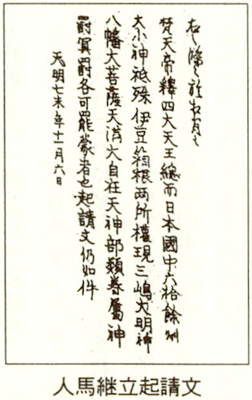 右之條々於相背者
梵天帝釋四大天王總而日本國中六拾餘州
大小神祇殊伊豆箱根両所權現三嶋大明神
八幡大菩薩天満大自在天神部類眷屬神
罰冥罰各可罷蒙者也起請文仍如件
天明七未年十一月六日
人馬継立起請文